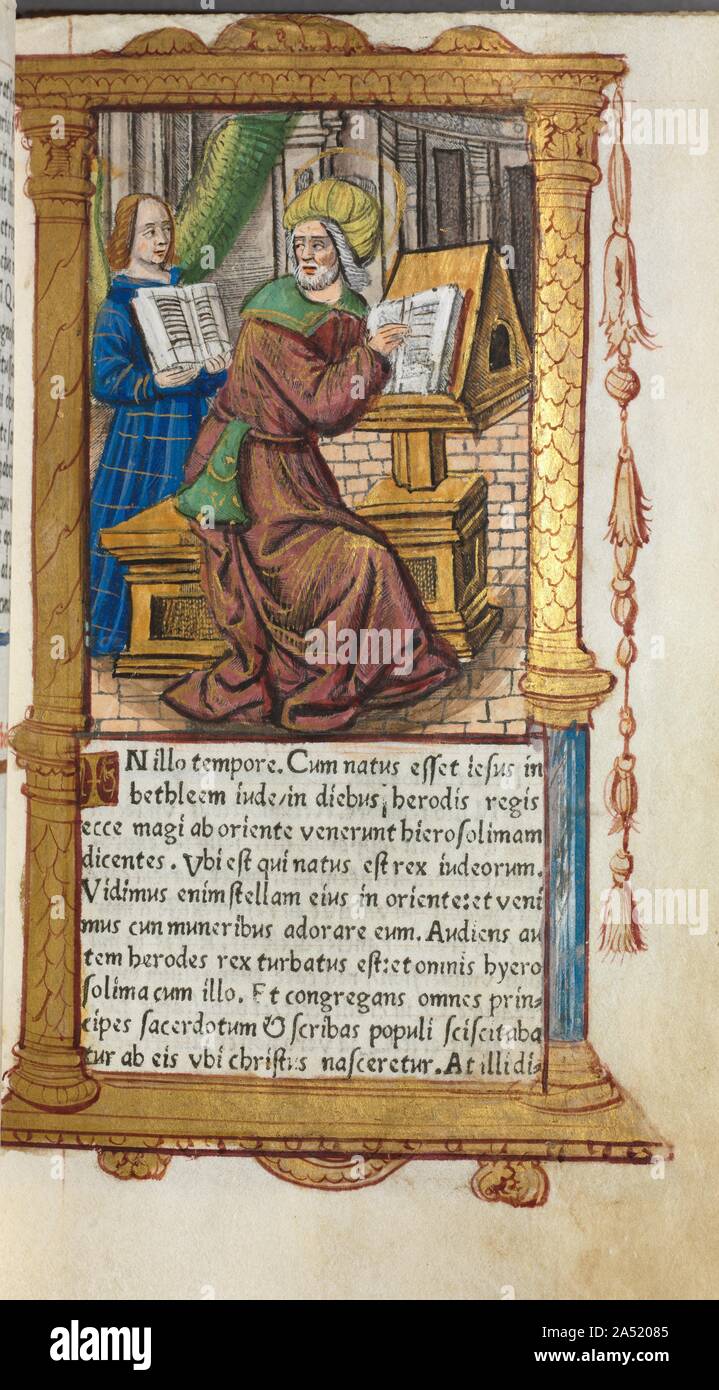 IN illo tempore. Cum natus esset iesus in
bethleem iude/in diebus herodis regis
ecce magi ab oriente venerunt hierosolimam
dicentes. Vbi est qui natus est rex iudeorum.
Vidimus enim stellam eius in oriente:et veni
mus cun muneribus adorare eum. Audiens au
tem herodes rex turbatus est:et omnis hyero
solima cum illo. Et congregans omnes prin-
cipes sacerdotum & scribas populi sciscitaba
tur ab eis vbi christus nasceretur. At illi di-
alamy
Image ID: 2A52085
www.alamy.com